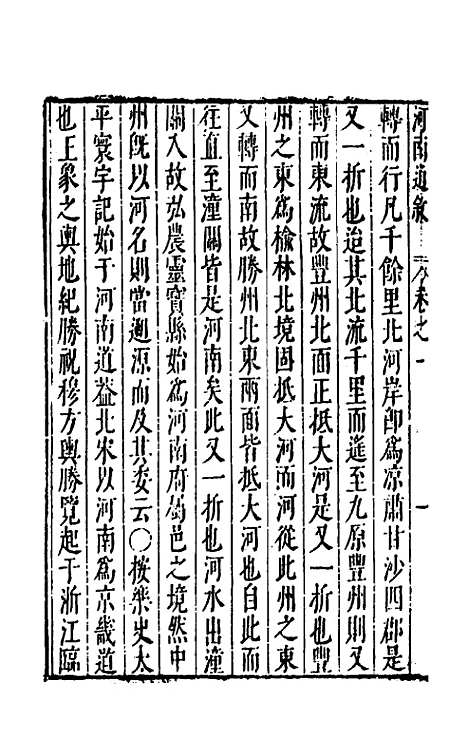 河南通敘 卷之一 一
轉而行凡千餘里北河岸卽爲凉肅甘沙四郡是
又一折也迨其北流千里而遙至九原豐州則又
轉而東流故豐州北面正抵大河是又一折也豐
州之東爲榆林北境固抵大河而河從此州之東
又轉而南故勝州北東兩面皆抵大河也自此而
往直至潼關皆是河南矣此又一折也河水出潼
關入故弘農靈寶縣始爲河南府屬邑之境然中
州旣以河名則當遡源而及其委云〇按樂史太
平寰宇記始于河南道葢北宋以河南爲京畿道
也王象之輿地紀勝祝穆方輿勝覽起于浙江臨